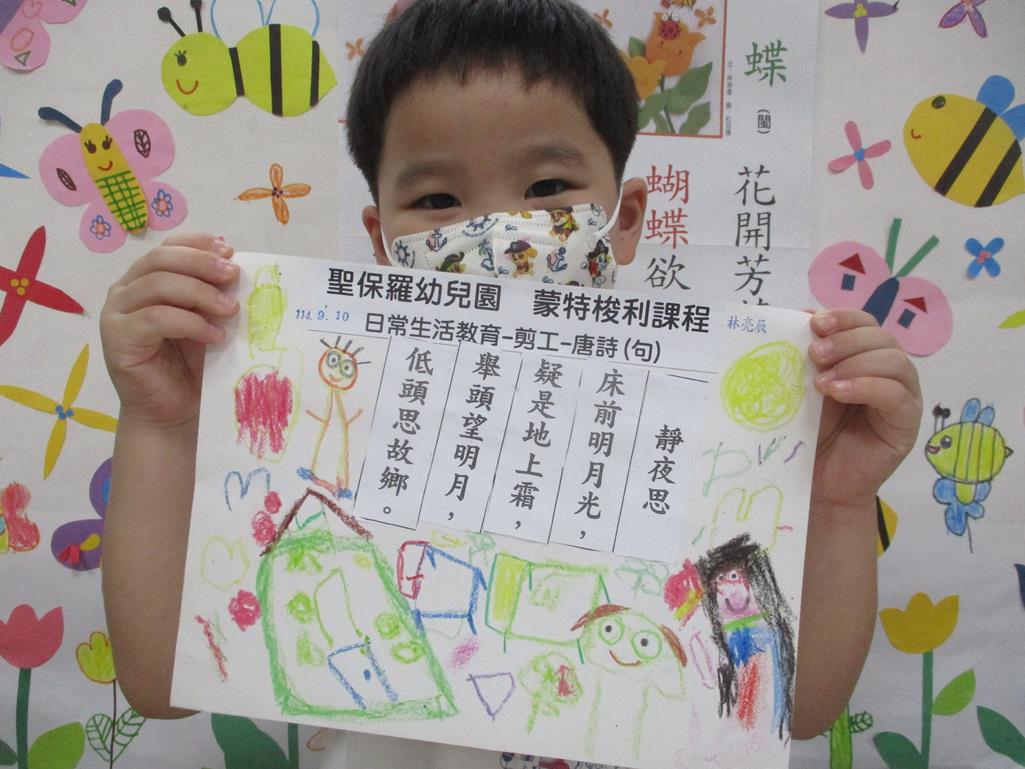 聖保羅幼兒園　蒙特梭利課程
114. 9. 10
林亮辰
日常生活教育–剪工–唐詩(句)
靜夜思
床前明月光，
疑是地上霜，
舉頭望明月，
低頭思故鄉。
蝶
(閩)
花開芳
蝴蝶欲